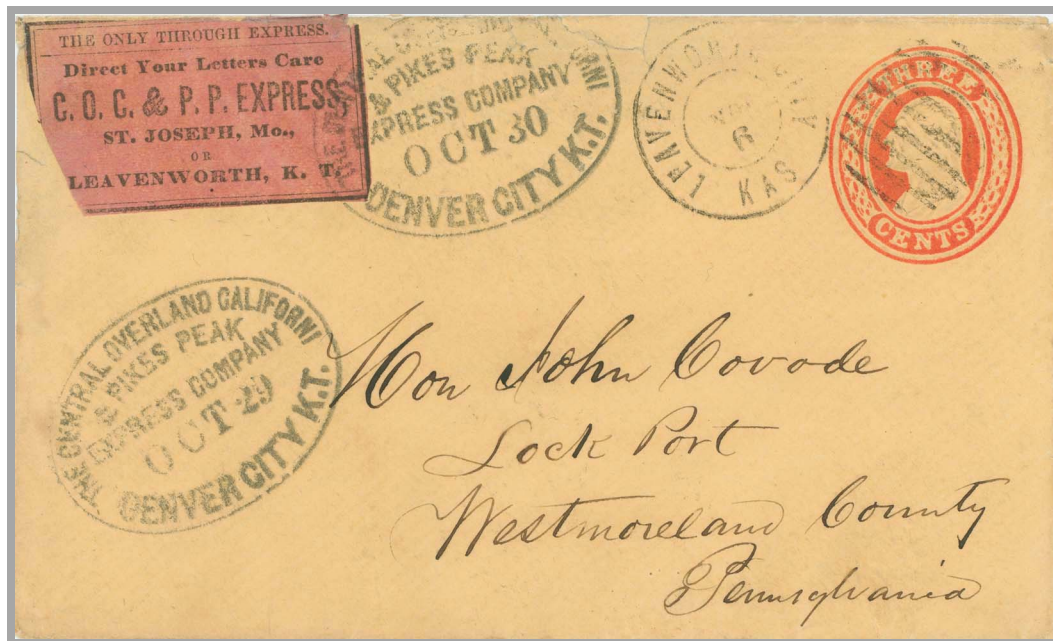 THE ONLY THROUGH EXPRESS.
Direct Your Letters Care
C. O. C. & P. P. EXPRESS,
ST. JOSEPH, Mo.,
OR
LEAVENWORTH, K. T.
& PIKES PEAK
EXPRESS COMPANY
OCT 30
DENVER CITY K.T.
LEAVENWORTH CITY
NOV
6
KAS
THREE
CENTS
THE CENTRAL OVERLAND CALIFORNI
& PIKES PEAK
EXPRESS COMPANY
OCT 29
DENVER CITY K.T.
Hon John Covode
Lock Port
Westmoreland County
Pennsylvania